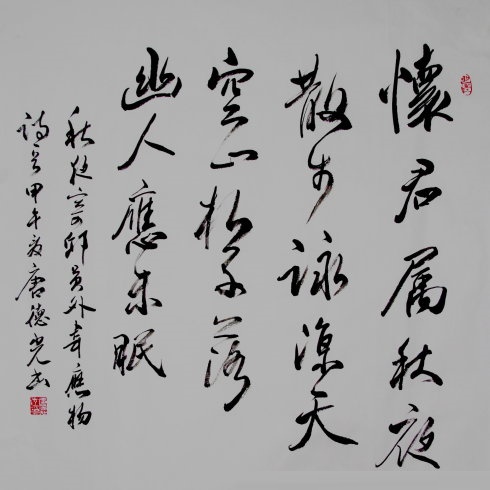 懷君属秋夜
散步詠凉天
空山松子落
幽人應未眠
秋夜寄邱员外韋應物
詩 甲午夏唐德光书